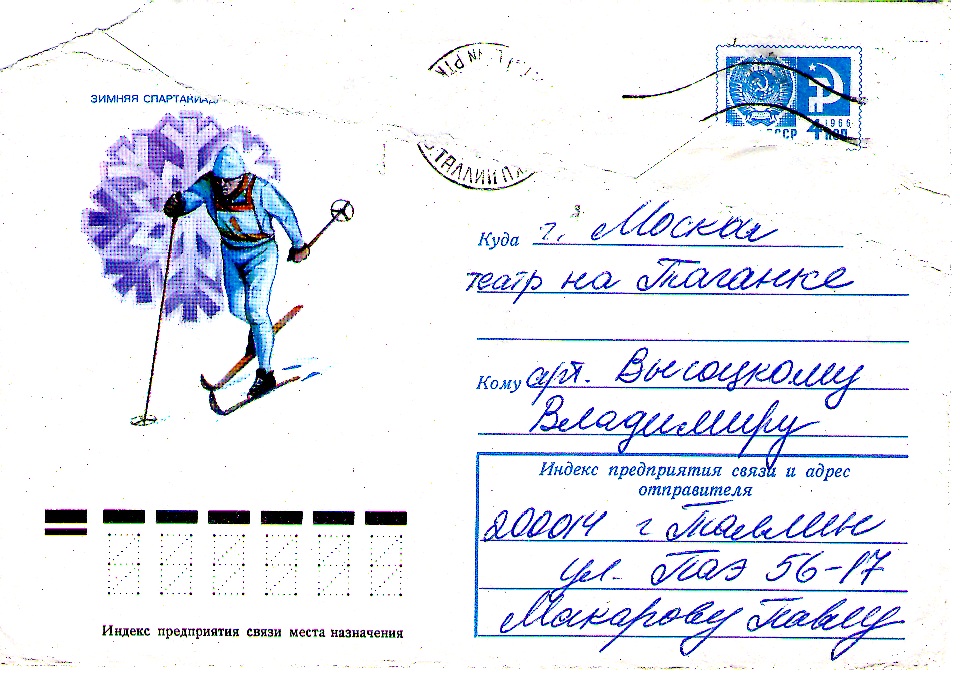 ЗИМНЯЯ СПАРТАКИАД
ТАЛЛИН
СССР 1966
4 КОП
Куда г. Москва
театр на Таганке
Кому арт. Высоцкому
Владимиру
Индекс предприятия связи и адрес
отправителя
200014 г Таллин
ул. Паэ 56-17
Макарову Павлу
Индекс предприятия связи места назначения